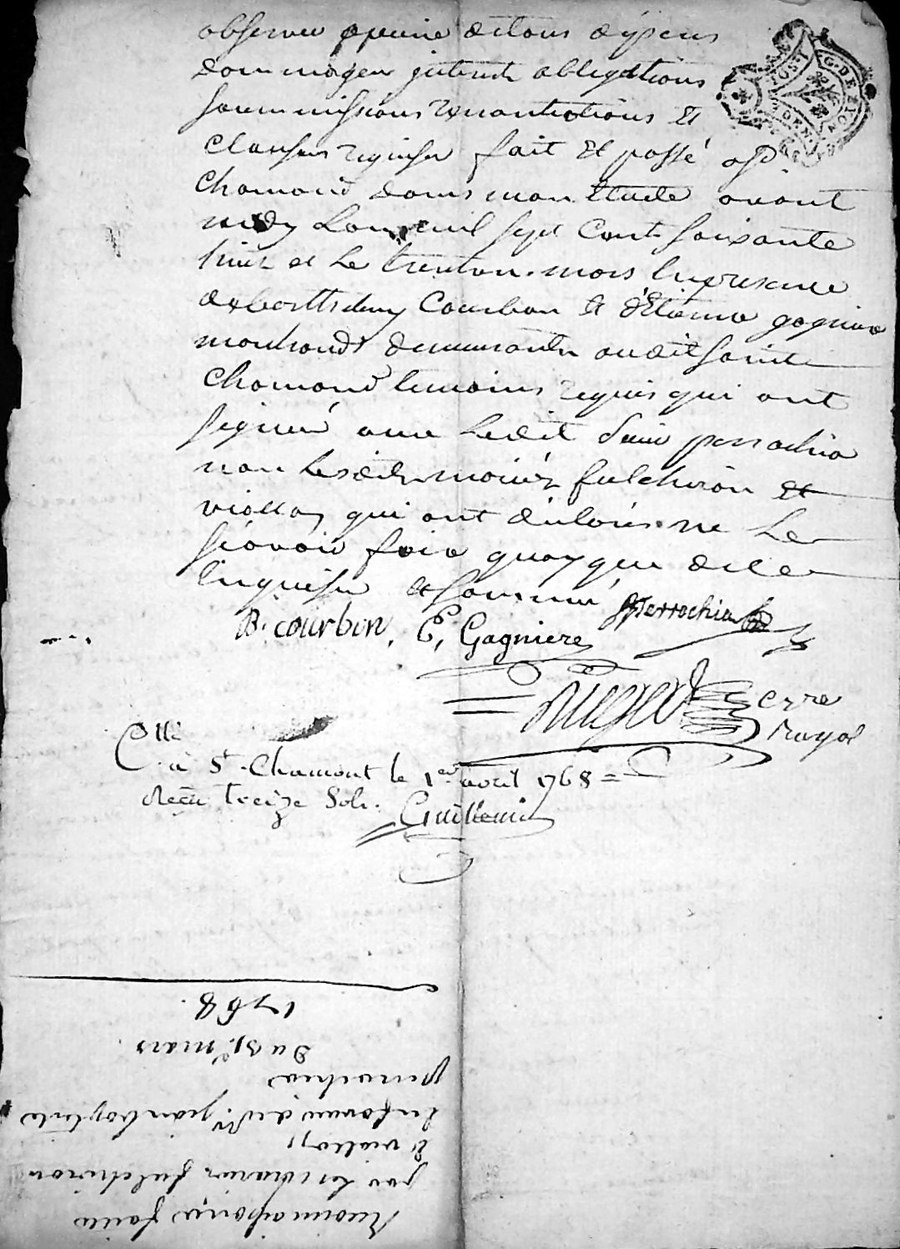 observer a peine de tous depens
dommages interests obligations
soummissions renontiations et
clauses requises fait et passé a St
chamond dans mon Etude avant
midy L'an mil sept Cent soixante
huit et Le trente un mars En presence
de barthelemy Courbon et d'Etienne gagniere
marchands demeurants audit saint
Chamond temoins requis qui ont
signé avec Ledit sieur perrochia
non Lesdits mariés fulchiron et
viallon qui ont déclaré ne Le
sçavoir faire quoyque de ce
Enquis et sommé
B. courbon, E, Gagniere Perrochia
Nre
Royal
Collé
à St. Chamont le 1er avril 1768
Reçu treize Sols. Guillemin
Reconnaissance faite
par les mariés fulchiron
& viallon
En faveur de Sr. jean baptiste
perrochia
Du 31e mars
1768.
G. DE LYON